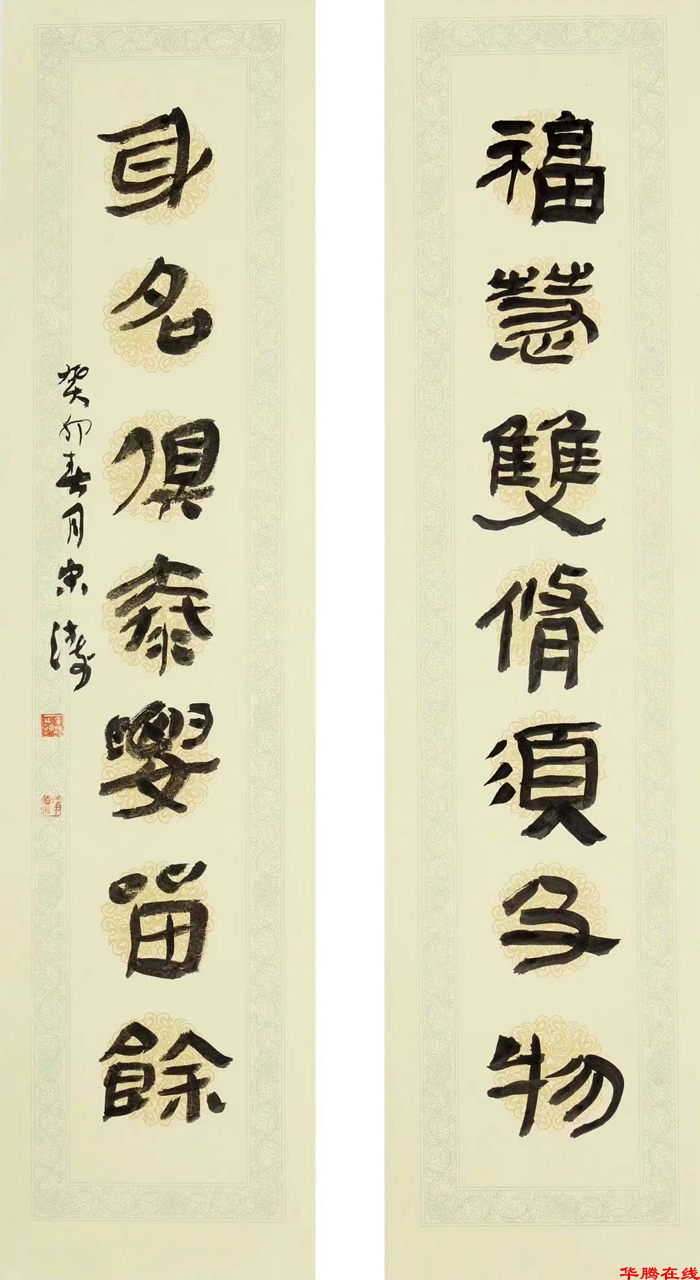 福慧雙脩須及物
身名俱泰要留餘
癸卯春月 濤
华腾在线